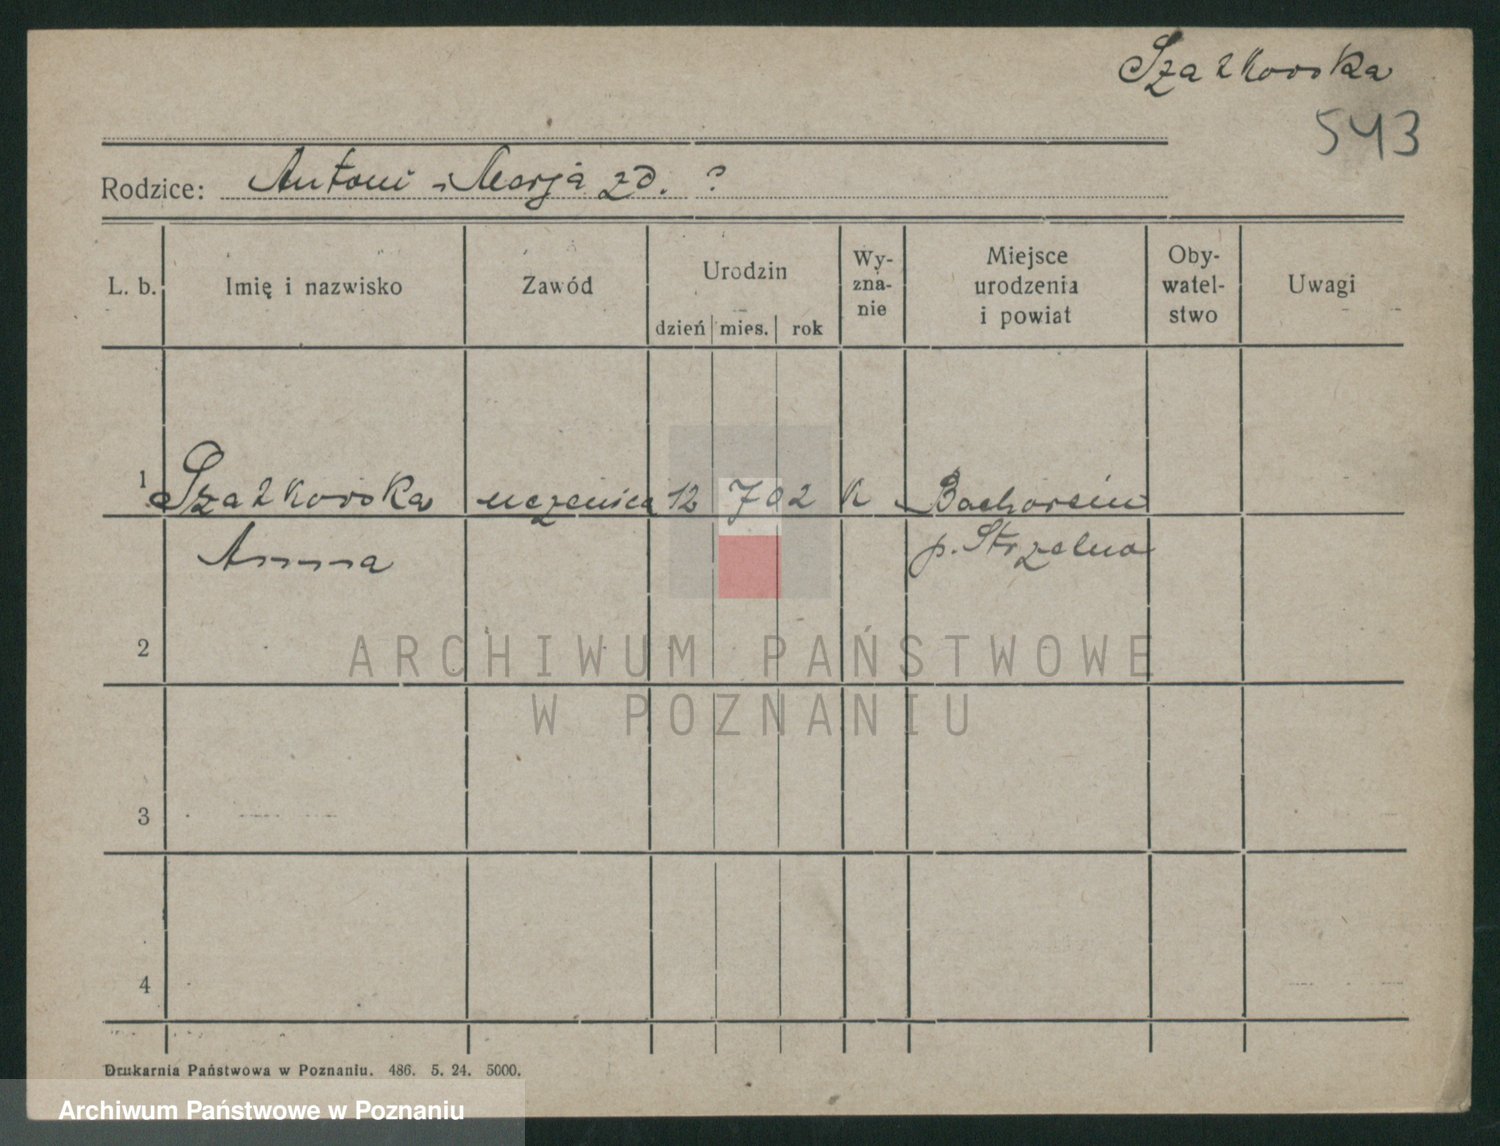 Szatkowska
543
Rodzice: Antoni i Marja zd. ?
L. b. Imię i nazwisko Zawód Urodzin dzień mies. rok Wy-zna-nie Miejsce urodzenia i powiat Oby-watel-stwo Uwagi
1 Szatkowska uczenica 12 7 02 k Bachorcin
Anna p. Strzelno
2
ARCHIWUM PAŃSTWOWE
W POZNANIU
3
4
Drukarnia Państwowa w Poznaniu. 486. 5. 24. 5000.
Archiwum Państwowe w Poznaniu